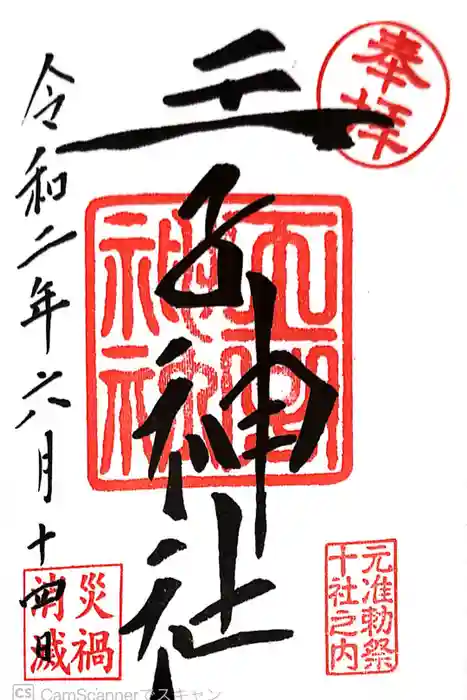 奉拝
王子神社
令和二年六月十四日
元准勅祭
十社之内
災禍
消滅
CS CamScannerでスキャン